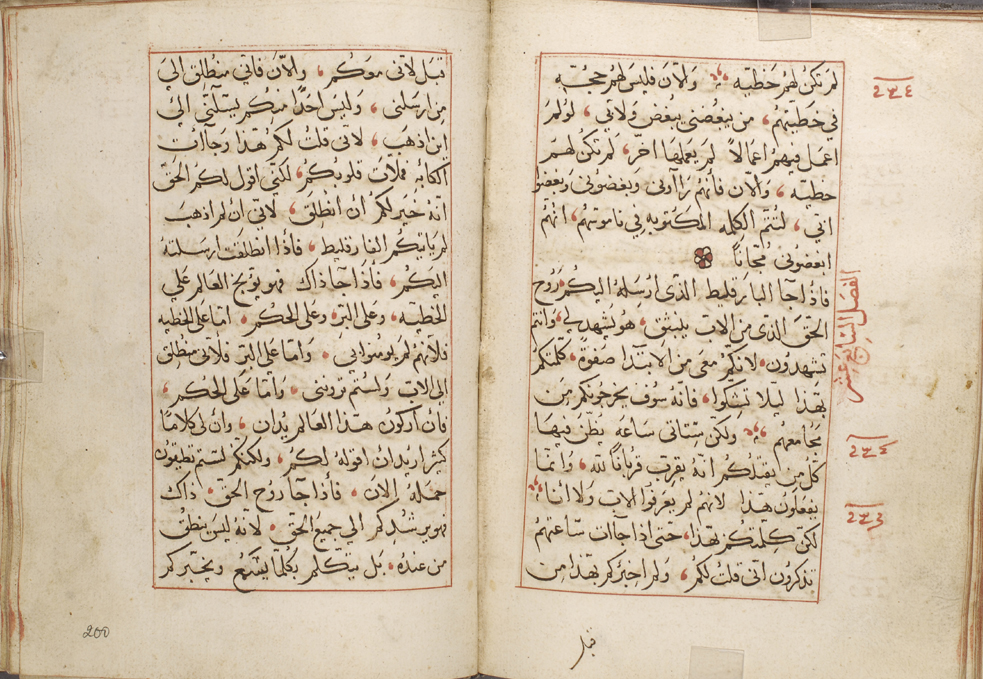 لم تكن لهم خطيه والان فليس لهم حجة
في خطيتهم من يبغضني يبغض ولاتي لو لم
اعمل فيهم اعمالاً لم يعملها اخر لم تكن لهم
خطيه والان فانهم راآوني وبغضوني وبغضوا
اتي لتتم الكلمه المكتوبه في ناموسهم انهم
ابغضوني مجاناً
فاذا جآ البارقليط الذي ارسله اليكم روح
الحق الذي من الاب ينبثق هو يشهد لي وانتم
تشهدون لانكم معي من الابتدا صفوة كلمتكم
بهذا ليلا تشكوا فانه سوف يخرجونكم من
مجامعهم ولكن ستاتي ساعه يظن فيها
كل من يقتلكم انه يقرب قرباناً لله وانما
يفعلون هذا لانهم لم يعرفوا الاب ولا انا
لكن كلمتكم بهذا حتى اذا جاات ساعتهم
تذكرون اني قلت لكم ولم اخبركم بهذا من
قبل
الفصل السابع عشر
٢٣٤
قبل لاني معكم والان فاني منطلق الى
من ارسلني وليس احداً منكم يسئلني الى
اين اذهب لاني قلت لكم هذا وجاات
الكابه فملات قلوبكم لكني اقول لكم الحق
انه خير لكم ان انطلق لاني ان لم اذهب
لم ياتيكم البارقليط فاذا انطلقت ارسلته
اليكم فاذا جآ ذاك فهو يوبخ العالم على
الخطيه وعلى البر وعلى الحكم اما على الخطيه
فلانهم لم يومنوا بي واما على البر فلاني منطلق
الى الاب ولستم تروننى واما على الحكم
فان اركون هذا العالم يدان وان لي كلاماً
كثيراً اريد ان اقوله لكم ولكنكم لستم تطيقون
حمله الان فاذا جآ روح الحق ذاك
فهو يرشدكم الى جميع الحق لانه ليس ينطق
من عنده بل يتكلم بكلما يسمع ويخبركم
200